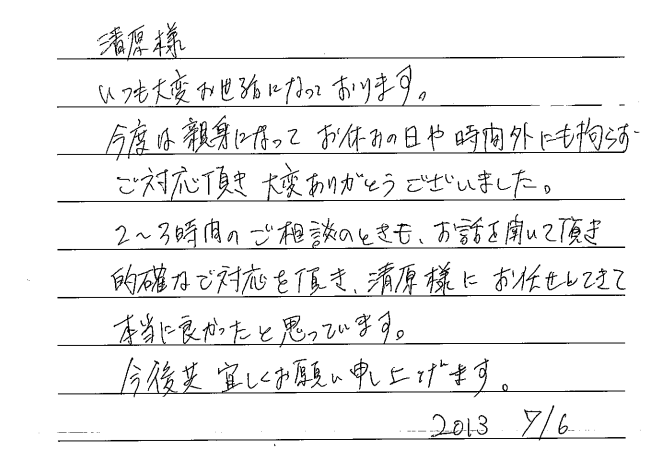 清原様
いつも大変お世話になっております。
今度は親身になって お休みの日や時間外にも拘らず
ご対応頂き 大変ありがとうございました。
2～3時間のご相談のときも、お話を聞いて頂き
的確なご対応を頂き、清原様に お任せしてきて
本当に良かったと思っています。
今後共 宜しくお願い申し上げます。
2013 7/6